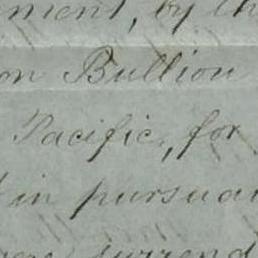 ment, by th
on Bullion
Pacific, for
in pursua
surrend